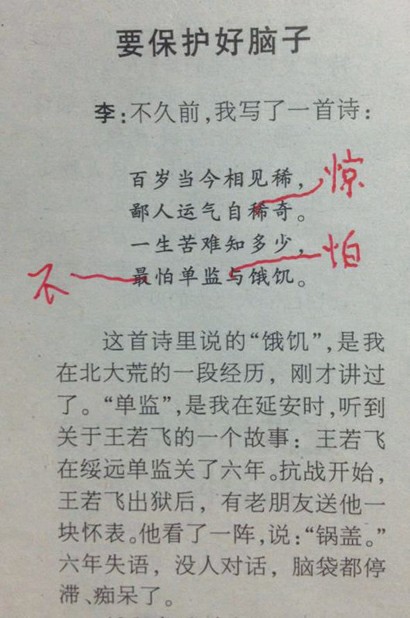 要保护好脑子
李：不久前，我写了一首诗：
百岁当今相见稀，
惊
鄙人运气自稀奇。
一生苦难知多少，
怕
不
最怕单监与饿饥。
这首诗里说的“饿饥”，是我
在北大荒的一段经历，刚才讲过
了。“单监”，是我在延安时，听到
关于王若飞的一个故事：王若飞
在绥远单监关了六年。抗战开始，
王若飞出狱后，有老朋友送他一
块怀表。他看了一阵，说：“锅盖。”
六年失语，没人对话，脑袋都停
滞、痴呆了。